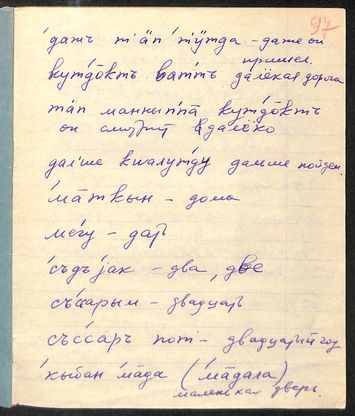 97
'дажъ т'äп' 'тӱтда - даже он
пришел.
кут'дőктъ ватть далёкая дорога
тáп манныпа кут'дőктъ
он смотрит далёко
дал'ше квалут'ду дальше пойдем
'мāткын - дома
мéгу - дать
'съдъjак - два, две
съ'сарым - двадцать
съ'ссаръ пот - двадцатый год
'кыбан 'мāда ('мāдала)
маленькая дверь.